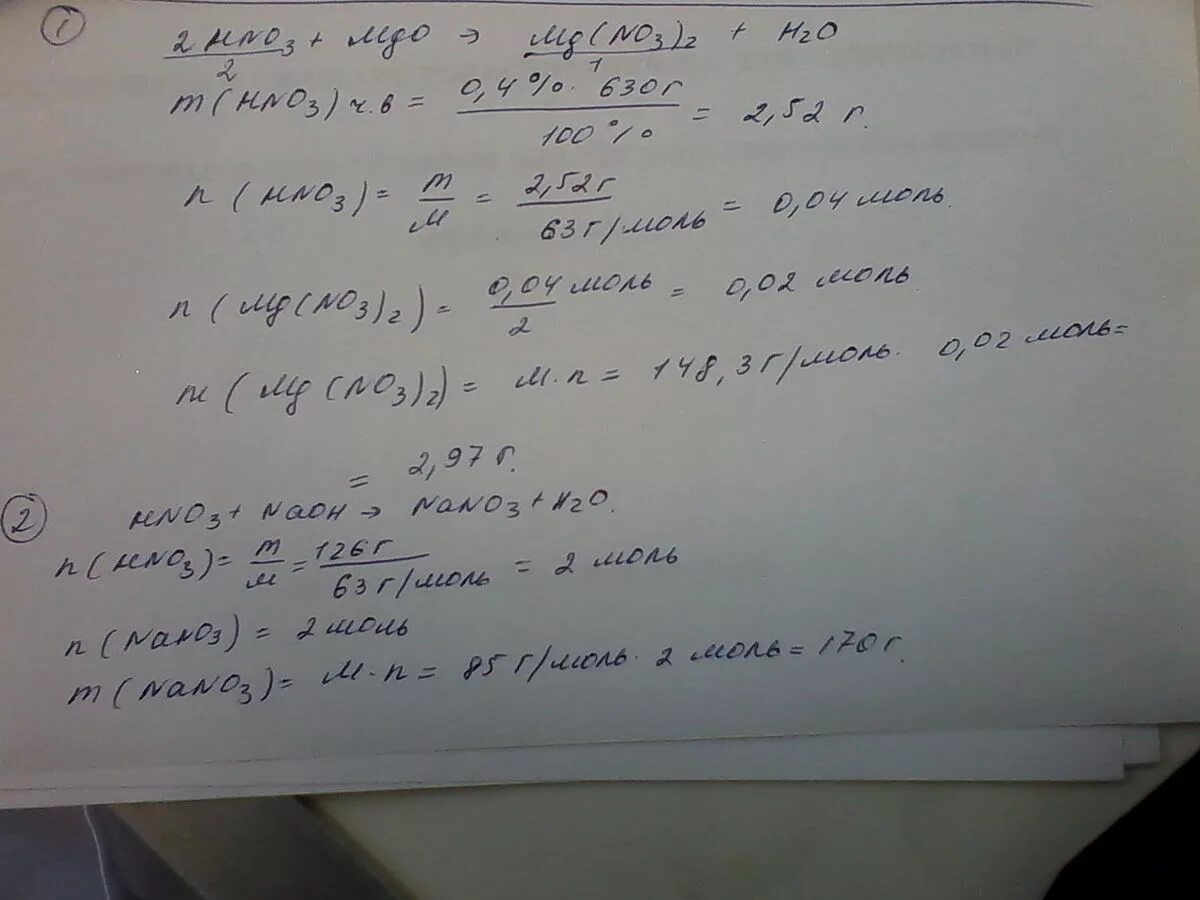 1
2HNO3 + MgO → Mg(NO3)2 + H2O
2 1
m(HNO3) ч.в = 0,4% · 630 г / 100% = 2,52 г.
n(HNO3) = m/M = 2,52 г / 63 г/моль = 0,04 моль.
n(Mg(NO3)2) = 0,04 моль / 2 = 0,02 моль
m(Mg(NO3)2) = M·n = 148,3 г/моль · 0,02 моль =
= 2,97 г.
2
HNO3 + NaOH → NaNO3 + H2O.
n(HNO3) = m/M = 126 г / 63 г/моль = 2 моль
n(NaNO3) = 2 моль
m(NaNO3) = M·n = 85 г/моль · 2 моль = 170 г.